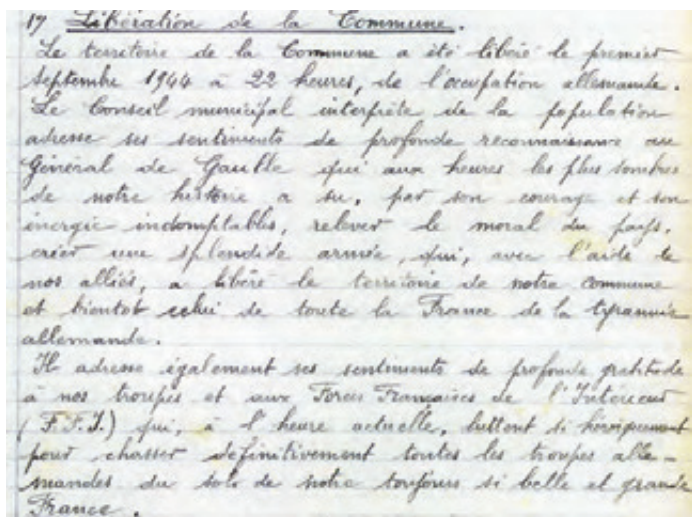 17 Libération de la Commune.
Le territoire de la Commune a été libéré le premier
Septembre 1944 à 22 heures, de l'occupation allemande.
Le Conseil municipal interprète de la population
adresse ses sentiments de profonde reconnaissance au
Général de Gaulle qui aux heures les plus sombres
de notre histoire a su, par son courage et son
énergie indomptables, relever le moral du pays,
créer une splendide armée, qui, avec l'aide de
nos alliés, a libéré le territoire de notre commune
et bientot celui de toute la France de la tyrannie
allemande.
Il adresse également ses sentiments de profonde gratitude
à nos troupes et aux Forces Françaises de l'Intérieur
(F.F.I.) qui, à l'heure actuelle, luttent si héroïquement
pour chasser définitivement toutes les troupes alle-
mandes du sol de notre toujours si belle et grande
France.